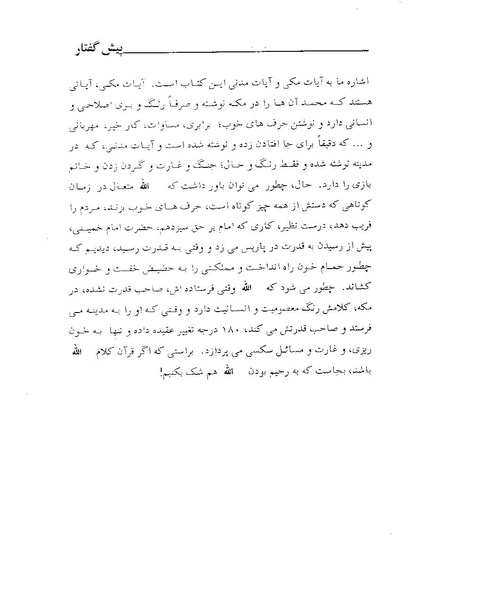 پیش گفتار
اشاره ما به آیات مکی و آیات مدنی این کتاب است. آیات مکی، آیاتی
هستند که محمد آن ها را در مکه نوشته و صرفاً رنگ و بوی اصلاحی و
انسانی دارد و نوشتن حرف های خوب؛ برابری، مساوات، کار خیر، مهربانی
و ... که دقیقاً برای جا افتادن زده و نوشته شده است و آیات مدنی، که در
مدینه نوشته شده و فقط رنگ و حال؛ جنگ و غارت و گردن زدن و خانم
بازی را دارد. حال، چطور می توان باور داشت که الله متعال در زمان
کوتاهی که دستش از همه چیز کوتاه است، حرف های خوب بزند، مردم را
فریب دهد، درست نظیر، کاری که امام بر حق سیزدهم، حضرت امام خمینی،
پیش از رسیدن به قدرت در پاریس می زد و وقتی به قدرت رسید، دیدیم که
چطور حمام خون راه انداخت و مملکتی را به حضیض خفت و خواری
کشاند. چطور می شود که الله وقتی فرستاده اش، صاحب قدرت نشده، در
مکه، کلامش رنگ معصومیت و انسانیت دارد و وقتی که او را به مدینه می
فرستد و صاحب قدرتش می کند، ۱۸۰ درجه تغییر عقیده داده و تنها به خون
ریزی، و غارت و مسائل سکسی می پردازد. براستی که اگر قرآن کلام الله
باشد، بجاست که به رحیم بودن الله هم شک بکنیم!